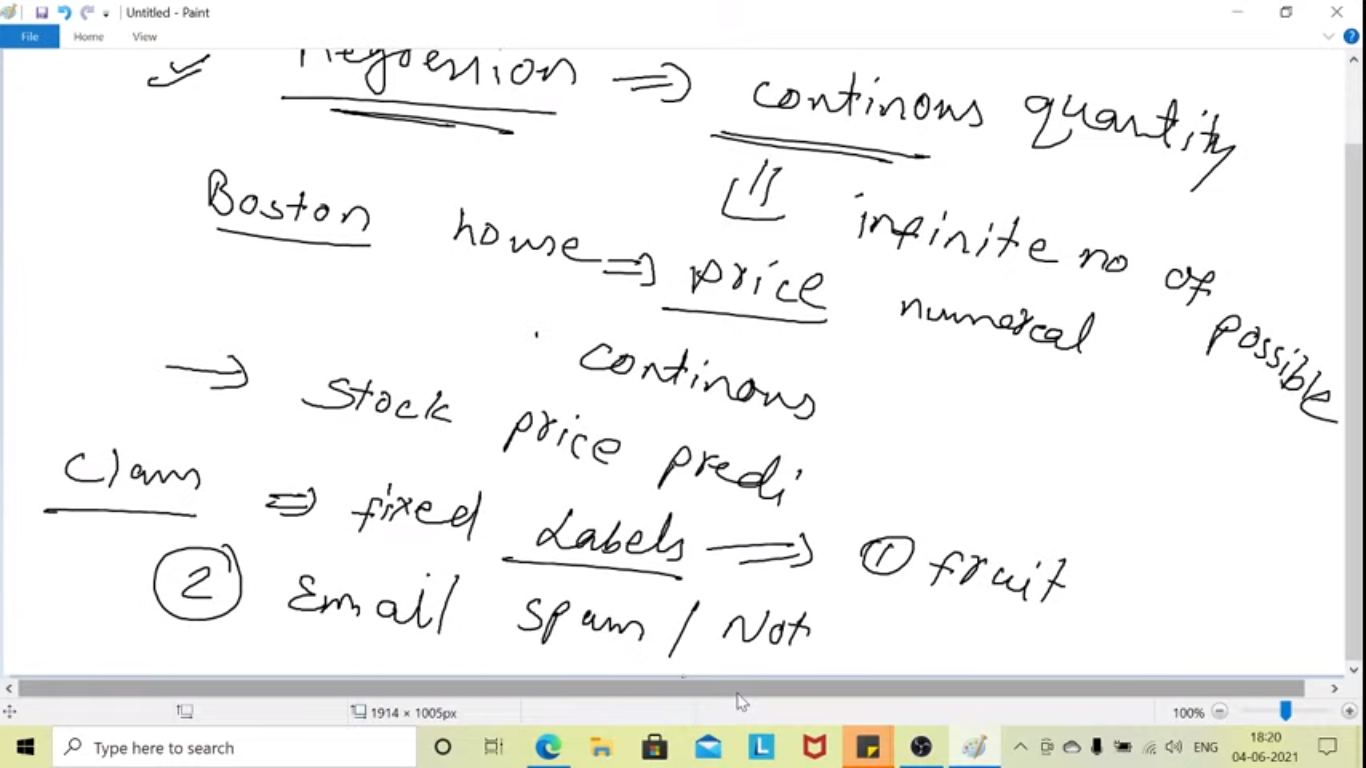 Untitled - Paint
File Home View
Regression ⇒ continous quantity
⇓ infinite no of possible
Boston house ⇒ price numerical
continous
→ Stock price predi
Class ⇒ fixed Labels ⇒ ① fruit
② Email spam / Not
1914 × 1005px 100%
Type here to search
ENG 18:20
04-06-2021